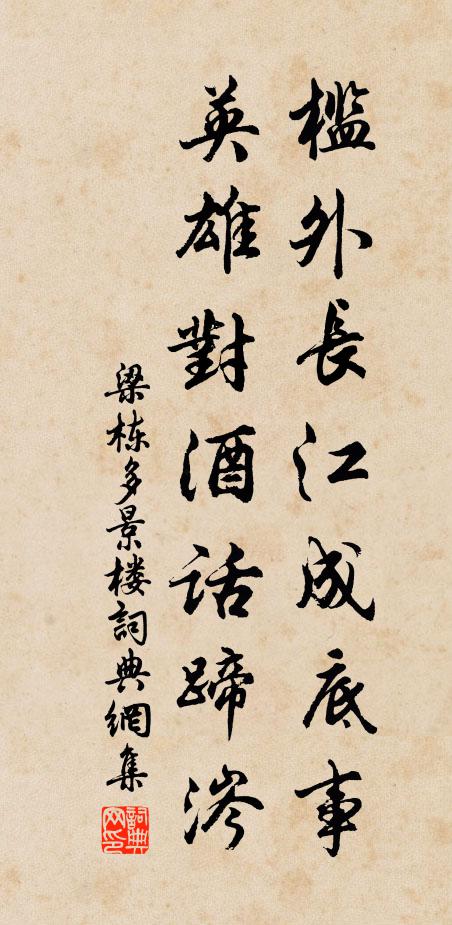 檻外長江成底事
英雄對酒話蹄涔
梁栋多景楼詞典網集
詞典网印